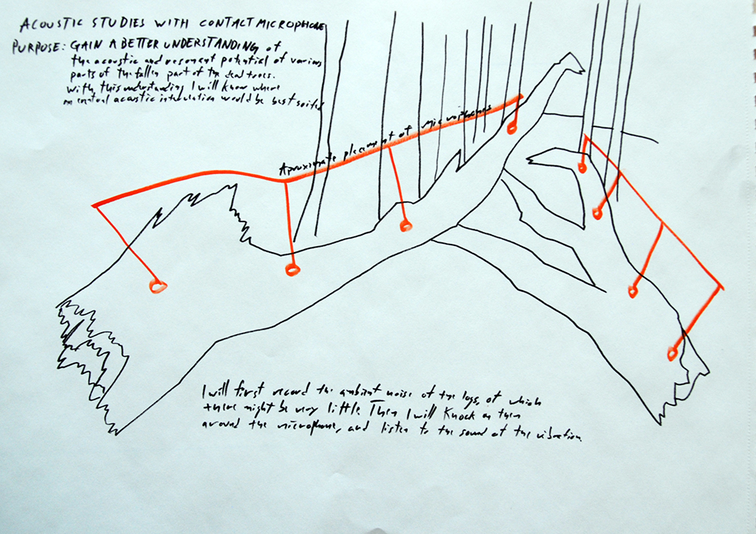 ACOUSTIC STUDIES WITH CONTACT MICROPHONE
PURPOSE: GAIN A BETTER UNDERSTANDING of
the acoustic and resonent potential of various
parts of the fallen part of the dead trees.
With this understanding I will know where
an acoustic would be best suited
Aproximate placement of microphones
I will first record the ambient noise of the logs, of which
there might be very little Then I will Knock on them
around the microphone, and listen to the sound of the vibration